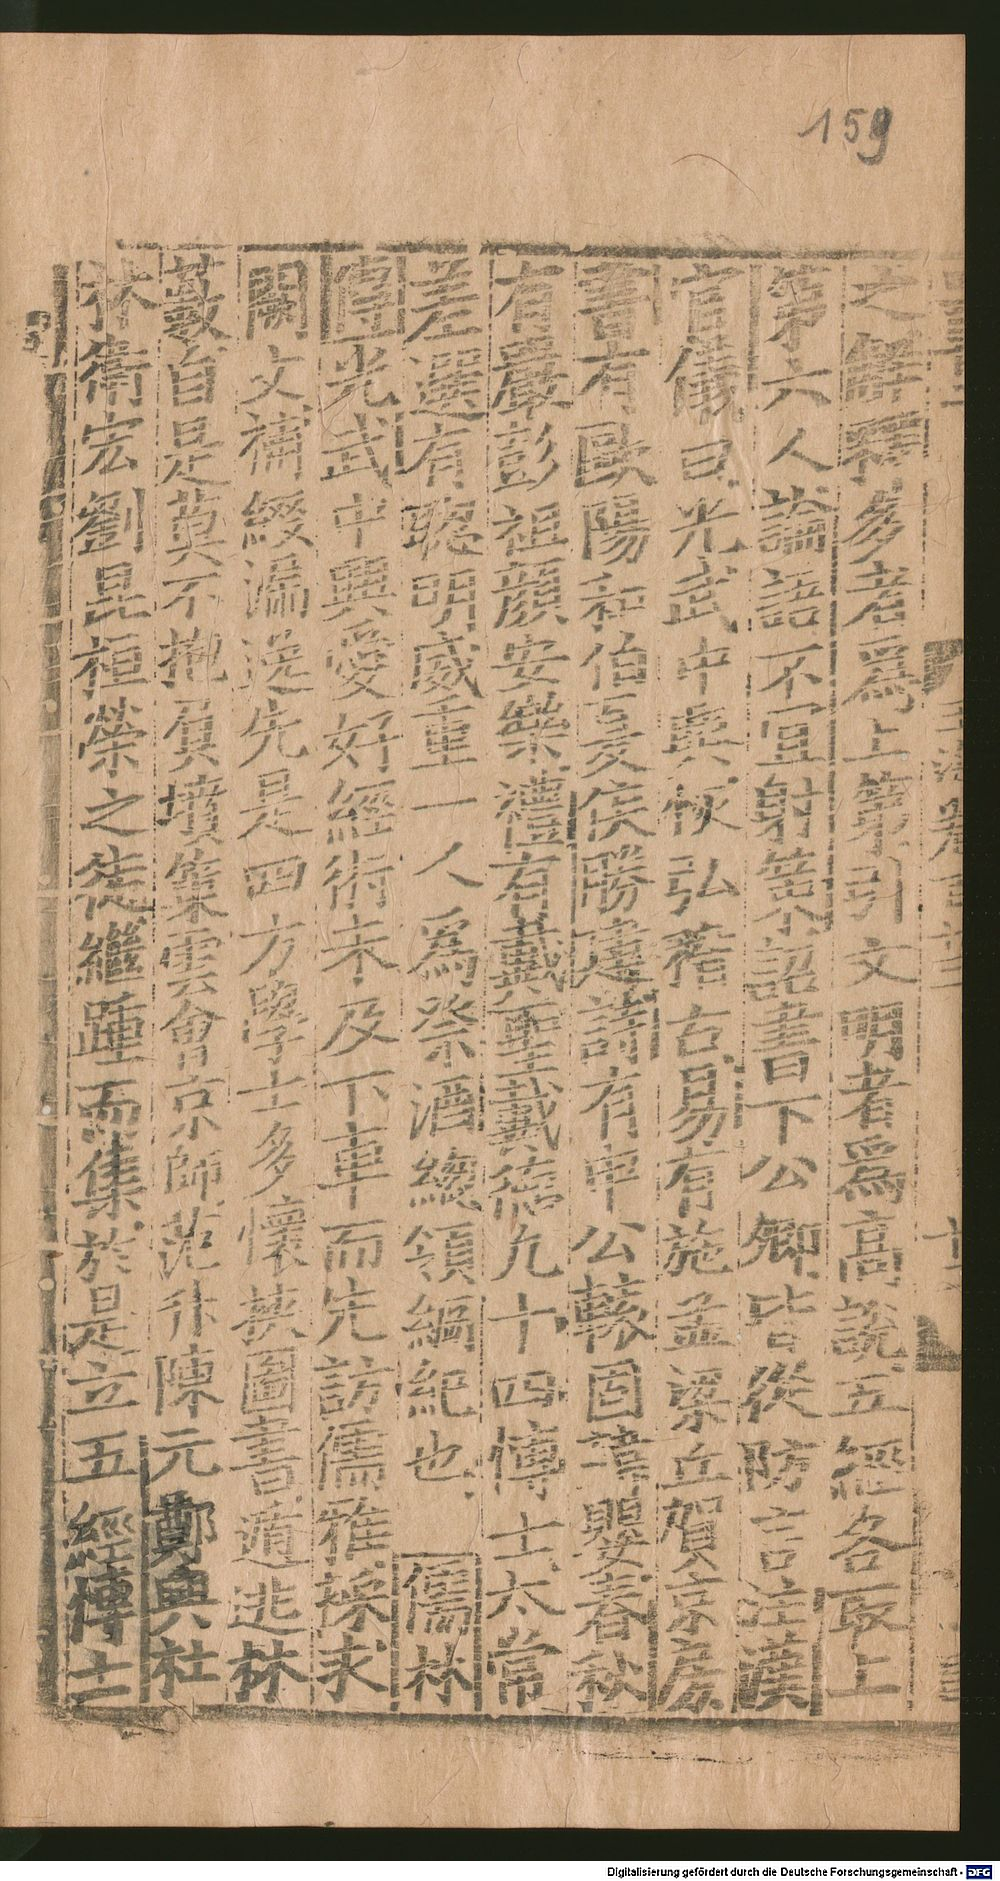 159
之解釋多者爲上第引文明者爲高說五經各取上
第六人論語不宜射策詔書曰下公卿皆從防言注漢
官儀曰光武中興恢弘稽古易有施孟梁丘賀京房
書有歐陽和伯夏侯勝建詩有申公轅固韓嬰春秋
有嚴彭祖顏安樂禮有戴聖戴德凡十四博士太常
差選有聰明威重一人爲祭酒總領綱紀也儒林
傳光武中興愛好經術未及下車而先訪儒雅採求
闕文補綴漏逸先是四方學士多懷挾圖書遁逃林
藪自是莫不抱負墳策雲會京師范升陳元鄭興杜
林衞宏劉昆桓榮之徒繼踵而集於是立五經博士
Digitalisierung gefördert durch die Deutsche Forschungsgemeinschaft - DFG